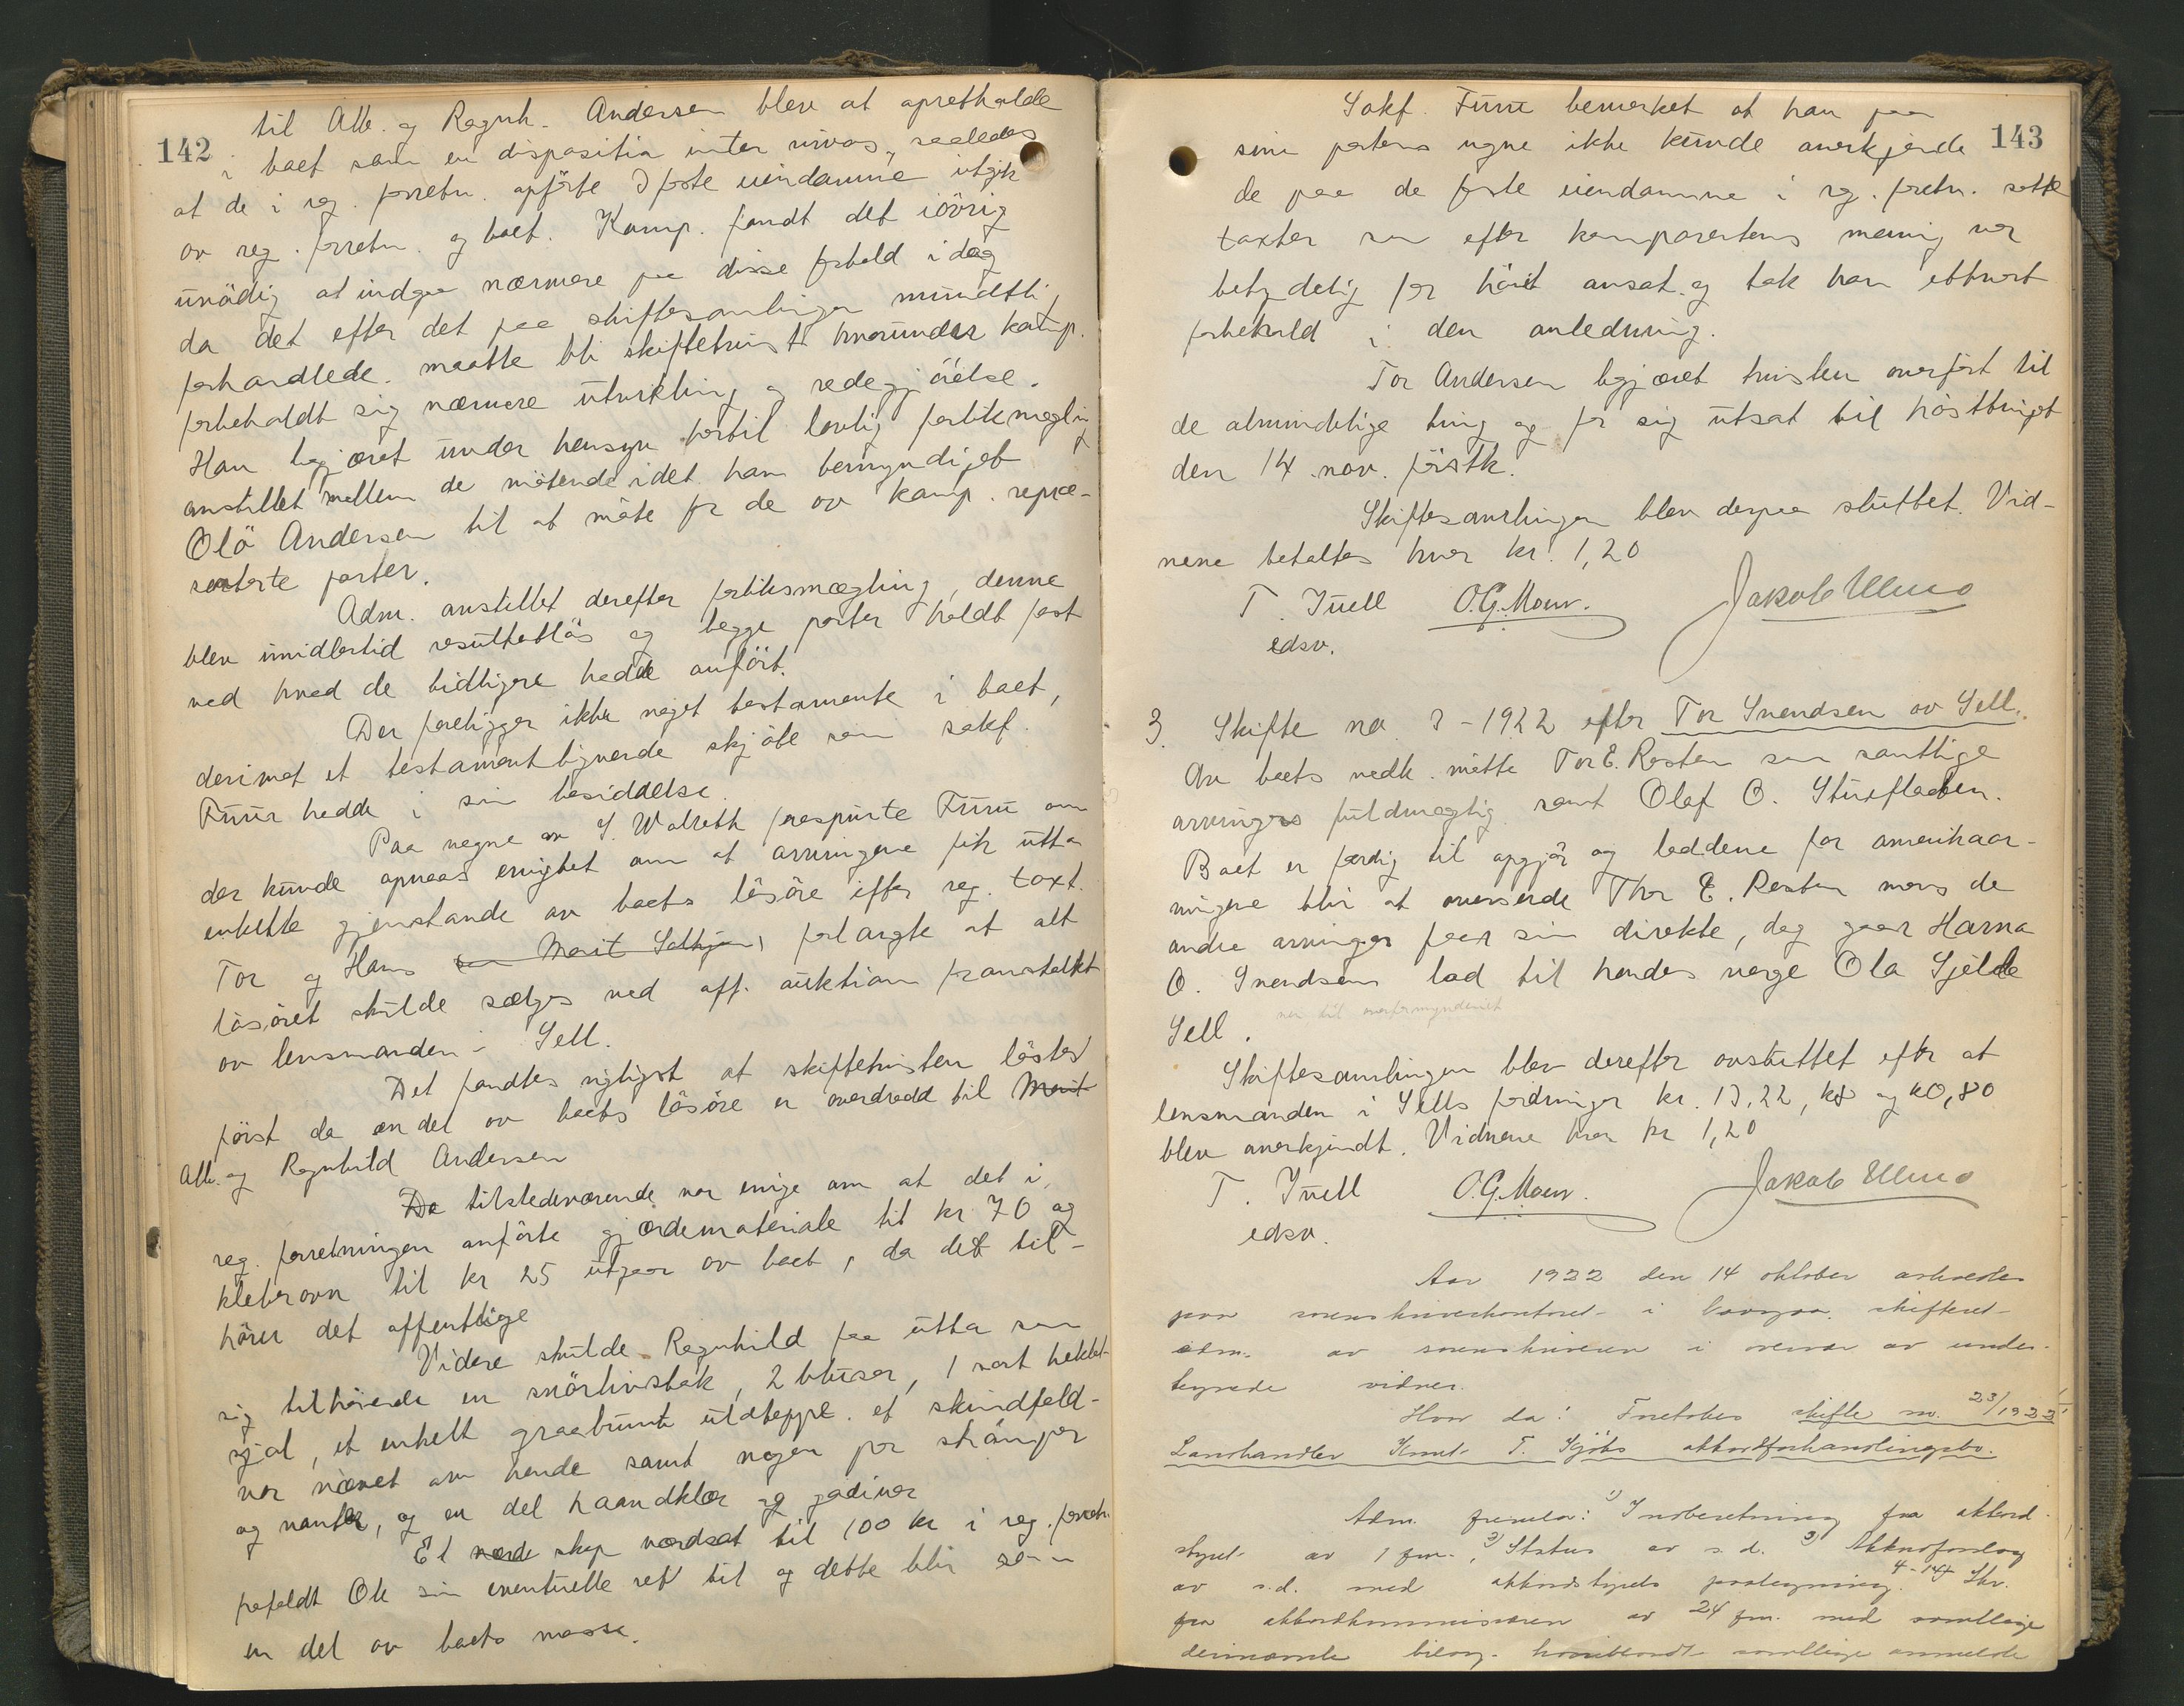 142
til Alb. og Ragnh. Andersen blev at opretholde
i boet som en disposition inter vivos, saaledes
at de i reg. forretn. opførte 3 faste eiendomme utgik
av reg. forretn. og boet. Komp. fandt det iövrig
unödig at indgaa nærmere paa disse forhold idag
da det efter det paa skiftesamlingen mundtlig
forhandlede maatte bli skiftetvist hvorunder komp.
forbeholdt sig nærmere utvikling og redegjörelse.
Han begjæret under hensyn hertil lovlig forliksmegling
anstillet mellem de mötende idet han bemyndiget
Ola Andersen til at möte for de av komp. repræ-
senterte parter.
Adm. anstillet derefter forliksmægling, denne
blev imidlertid resultatlös og begge parter holdt fast
ved hvad de tidligere hadde anfört.
Der foreligger ikke noget testamente i boet,
derimot et testamentlignende skjöte som sakf.
Furu hadde i sin besiddelse.
Paa vegne av J. Walseth forespurte Furu om
der kunde opnaaes enighet om at arvingene fik utta
enkelte gjenstande av boets lösöre efter reg. taxt.
Tor og Hans forlangte at alt
lösöret skulde sælges ved off. auktion foranstaltet
av lensmanden i Sell.
Det fandtes rigtigst at skiftetvisten löstes
först da en del av boets lösöre er overdradd til Marit
Alb. og Ragnhild Andersen
De tilstedeværende var enige om at det i
reg. forretningen anförte gjærdemateriale til kr 70 og
kleberovn til kr 25 utgaar av boet, da det til-
hörer det offentlige
Videre skulde Ragnhild faa utta som
sig tilhörende en snörlivstak, 2 bluser, 1 sort heklet
sjal, et enkelt graabrunt uldteppe. et skindfeld-
var nævnt om hende samt nogen par strömper
og vanter, og en del haandklær og gardiner
Et skap værdsat til 100 kr i reg. forretn.
frafaldt Ole sin eventuelle ret til og dette blir som
en del av boets masse.
143
Sakf. Furu bemerket at han paa
sine parters vegne ikke kunde anerkjende
de paa de faste eiendomme i reg. forretn. satte
taxter som efter komparentens mening var
betydelig for höit ansat og tok han ethvert
forbehold i den anledning.
Tor Andersen begjæret tvisten overfört til
de almindelige ting og for sig utsat til hösttinget
den 14 nov. förstk.
Skiftesamlingen blev derpaa sluttet. Vid-
nene betaltes hver kr. 1,20
T. Juell O.G. Moen. Jakob Ulmo
edsv.
3. Skifte no 3-1922 efter Tor Svendsen av Sell.
Av boets vedk. mötte Tor E. Rosten som samtlige
arvingers fuldmægtig samt Olaf O. Stuefladen.
Boet er færdig til opgjör og loddene for amerikaar-
vingene blir at oversende Thor E. Rosten mens de
andre arvinger faar sin direkte, dog gaar Harna
O. Svendsens lod til hendes verge Ola Sjelle
Sell. nei til overformynderiet
Skiftesamlingen blev derefter avsluttet efter at
lensmanden i Sells fordringer kr. 13,22, k8 og k0,80
blev anerkjendt. Vidnene hver kr 1,20
T. Juell O.G. Moen. Jakob Ulmo
edsv.
Aar 1922 den 14 oktober avholdes
paa sorenskriverkontoret i Vaagaa skifteret
adm. av sorenskriveren i overvær av under-
tegnede vidner.
Hvor da: Foretokes skifte nr. 23/1922:
Landhandler Knut T. Sjöbs akkordforhandlingsbo.
Adm. fremla: 1) Indberetning fra akkord-
styret av 1 fm., 2) Status av s.d. 3) Akkordforslag
av s.d. med akkordstyrets paategning. 4-14) Skr.
fra akkordkommissæren av 24 fm. med samtlige
deri nævnte bilag. hvoriblandt samtlige anmeldte